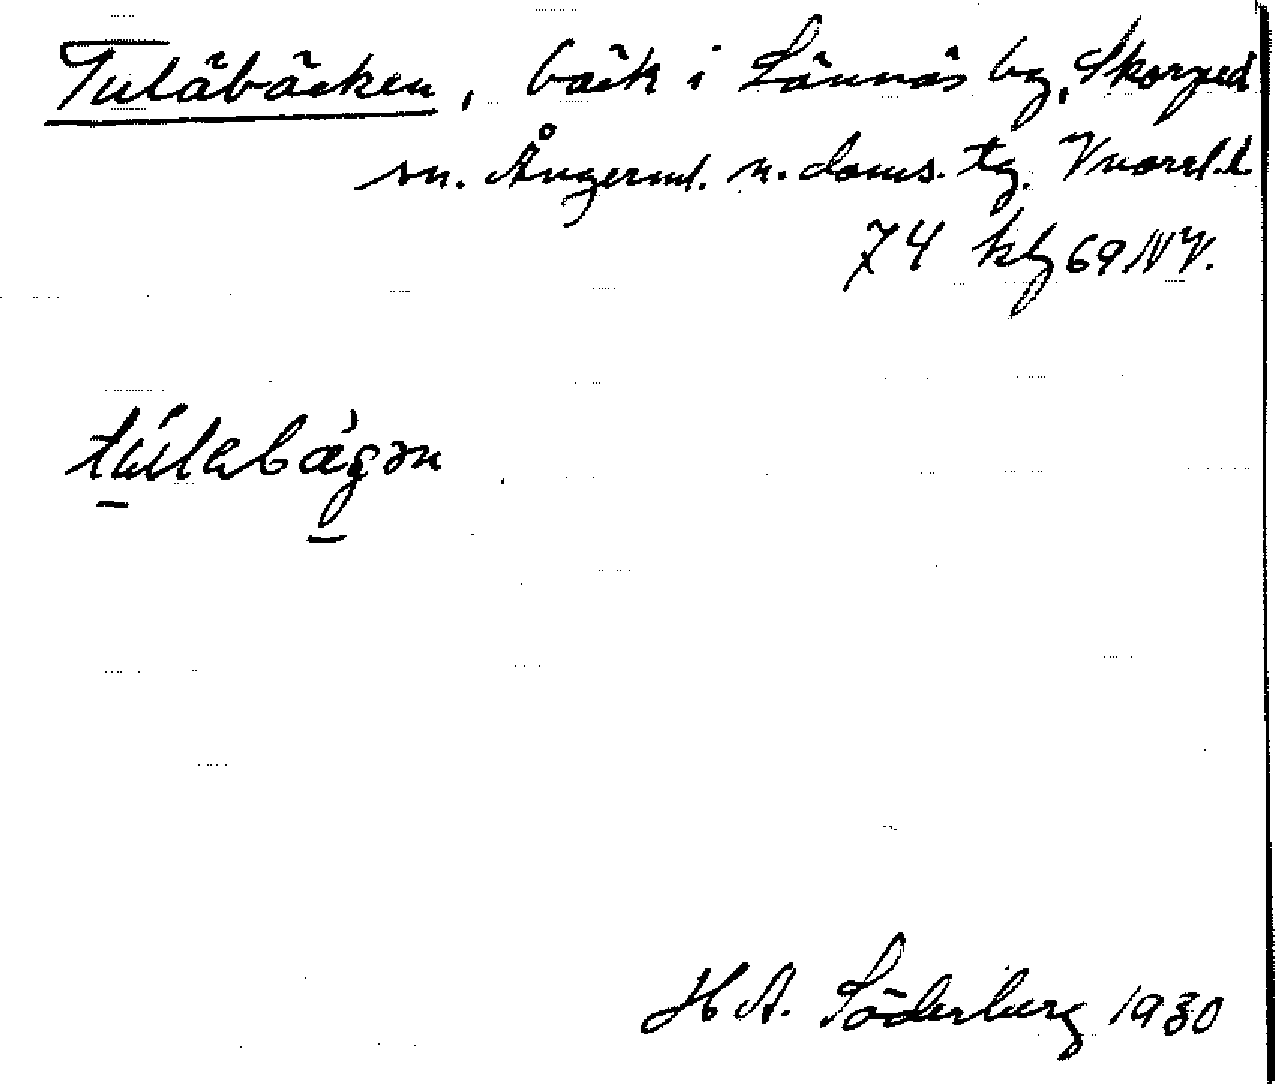 Tulåbäcken, bäck i Lännäs by, Skorped
sn. Ångerml. n. doms. tg. Vnordl. l
74 kbl 69 NV.
túlabǽgən
H A. Söderberg 1930